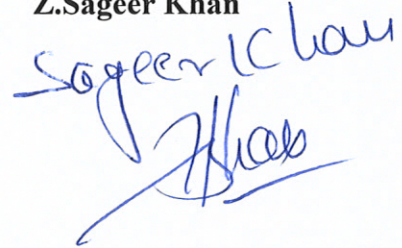 Z.Sageer Khan
Sageer Khan